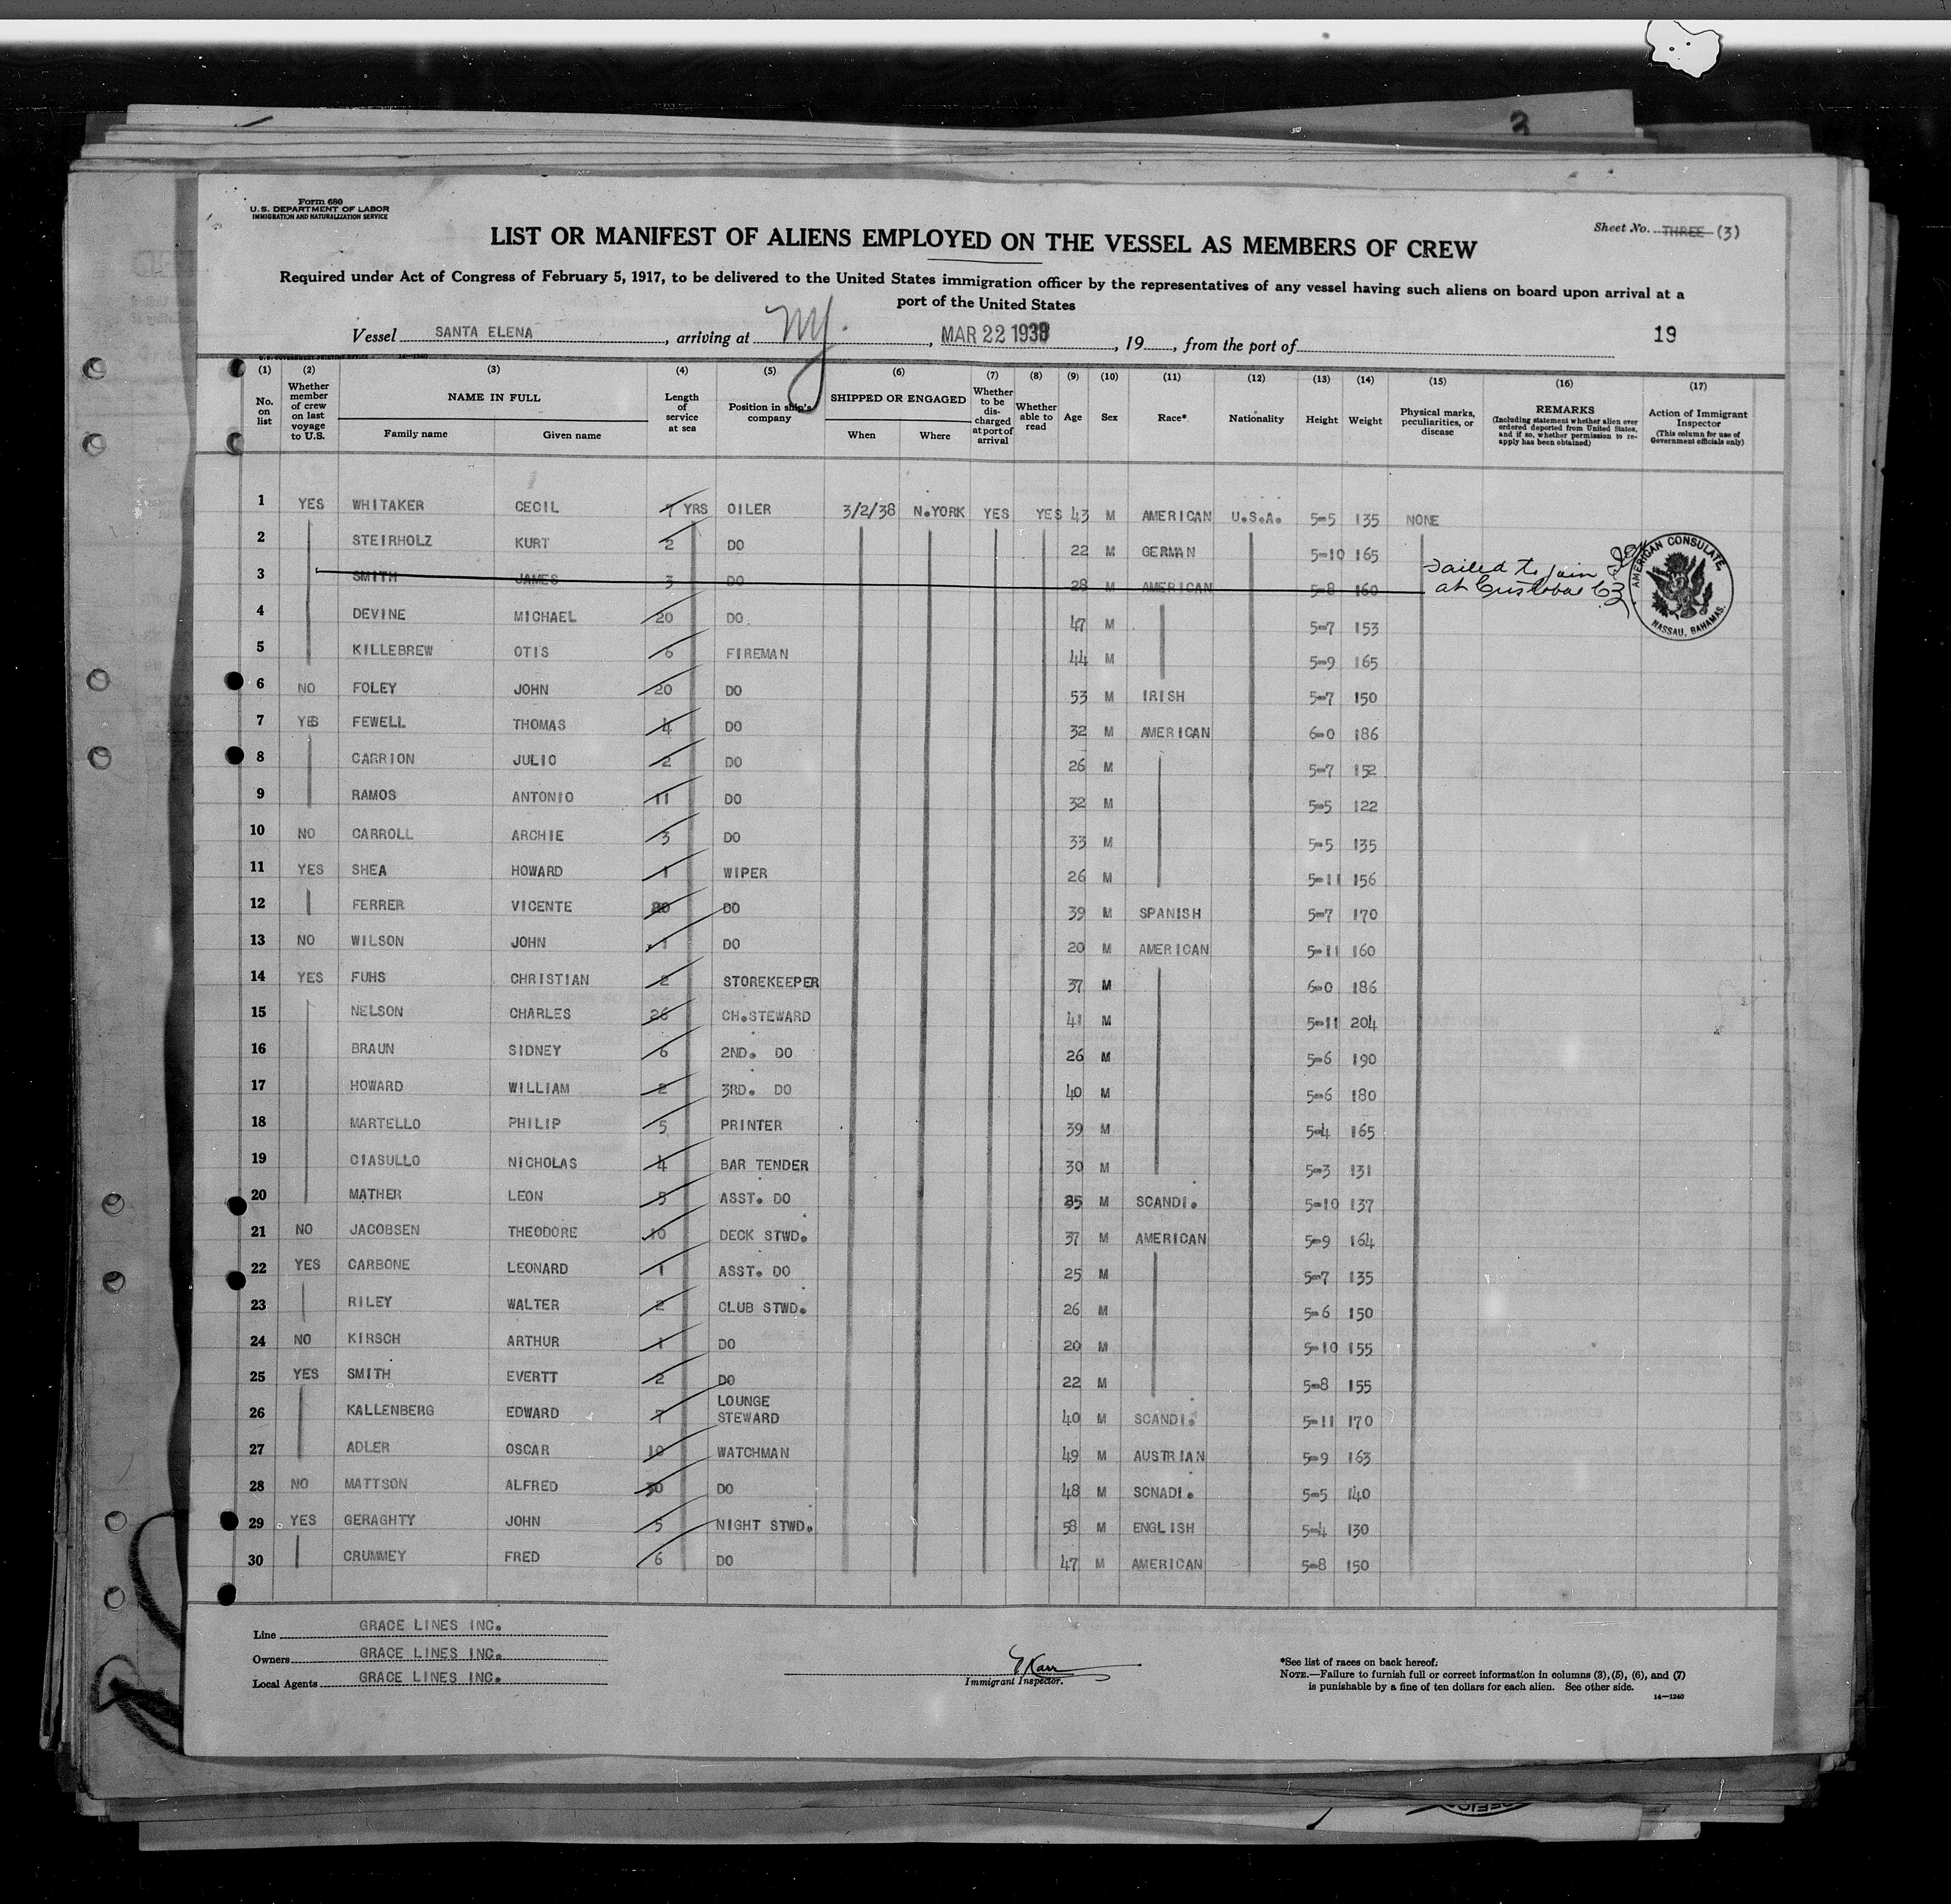 3
Form 680
U.S. DEPARTMENT OF LABOR
IMMIGRATION AND NATURALIZATION SERVICE
Sheet No. THREE (3)
LIST OR MANIFEST OF ALIENS EMPLOYED ON THE VESSEL AS MEMBERS OF CREW
Required under Act of Congress of February 5, 1917, to be delivered to the United States immigration officer by the representatives of any vessel having such aliens on board upon arrival at a
port of the United States
Vessel SANTA ELENA, arriving at NY., MAR 22 1938, 19, from the port of
19
U.S. GOVERNMENT PRINTING OFFICE 14-1240
(1) (2) (3) (4) (5) (6) (7) (8) (9) (10) (11) (12) (13) (14) (15) (16) (17)
No. on list
Whether member of crew on last voyage to U.S.
NAME IN FULL
Family name
Given name
Length of service at sea
Position in ship's company
SHIPPED OR ENGAGED
When
Where
Whether to be discharged at port of arrival
Whether able to read
Age
Sex
Race*
Nationality
Height
Weight
Physical marks, peculiarities, or disease
REMARKS
(Including statement whether alien ever ordered deported from United States, and if so, whether permission to reapply has been obtained)
Action of Immigrant Inspector
(This column for use of Government officials only)
1 YES WHITAKER CECIL 7 YRS OILER 3/2/38 N.YORK YES YES 43 M AMERICAN U.S.A. 5-5 135 NONE
2 STEIRHOLZ KURT 2 DO 22 M GERMAN 5-10 165
3 SMITH JAMES 3 DO 28 M AMERICAN 5-8 160 Failed to join at Cristobal CZ
AMERICAN CONSULATE, NASSAU, BAHAMAS.
4 DEVINE MICHAEL 20 DO. 47 M 5-7 153
5 KILLEBREW OTIS 6 FIREMAN 44 M 5-9 165
6 NO FOLEY JOHN 20 DO 53 M IRISH 5-7 150
7 YES FEWELL THOMAS 4 DO 32 M AMERICAN 6-0 186
8 CARRION JULIO 2 DO 26 M 5-7 152
9 RAMOS ANTONIO 11 DO 32 M 5-5 122
10 NO CARROLL ARCHIE 3 DO 33 M 5-5 135
11 YES SHEA HOWARD 1 WIPER 26 M 5-11 156
12 FERRER VICENTE DO 39 M SPANISH 5-7 170
13 NO WILSON JOHN 1 DO 20 M AMERICAN 5-11 160
14 YES FUHS CHRISTIAN 2 STOREKEEPER 37 M 6-0 186
15 NELSON CHARLES 26 CH.STEWARD 41 M 5-11 204
16 BRAUN SIDNEY 6 2ND. DO 26 M 5-6 190
17 HOWARD WILLIAM 2 3RD. DO 40 M 5-6 180
18 MARTELLO PHILIP 5 PRINTER 39 M 5-4 165
19 CIASULLO NICHOLAS 4 BAR TENDER 30 M 5-3 131
20 MATHER LEON 5 ASST. DO 35 M SCANDI. 5-10 137
21 NO JACOBSEN THEODORE 10 DECK STWD. 37 M AMERICAN 5-9 164
22 YES CARBONE LEONARD 1 ASST. DO 25 M 5-7 135
23 RILEY WALTER 2 CLUB STWD. 26 M 5-6 150
24 NO KIRSCH ARTHUR 1 DO 20 M 5-10 155
25 YES SMITH EVERTT 2 DO 22 M 5-8 155
26 KALLENBERG EDWARD 7 LOUNGE STEWARD 40 M SCANDI. 5-11 170
27 ADLER OSCAR 10 WATCHMAN 49 M AUSTRIAN 5-9 163
28 NO MATTSON ALFRED 30 DO 48 M SCNADI. 5-5 140
29 YES GERAGHTY JOHN 5 NIGHT STWD. 58 M ENGLISH 5-4 130
30 CRUMMEY FRED 6 DO 47 M AMERICAN 5-8 150
Line GRACE LINES INC.
Owners GRACE LINES INC.
Local Agents GRACE LINES INC.
Karr
Immigrant Inspector.
*See list of races on back hereof.
NOTE.—Failure to furnish full or correct information in columns (3), (5), (6), and (7)
is punishable by a fine of ten dollars for each alien. See other side.
14-1240